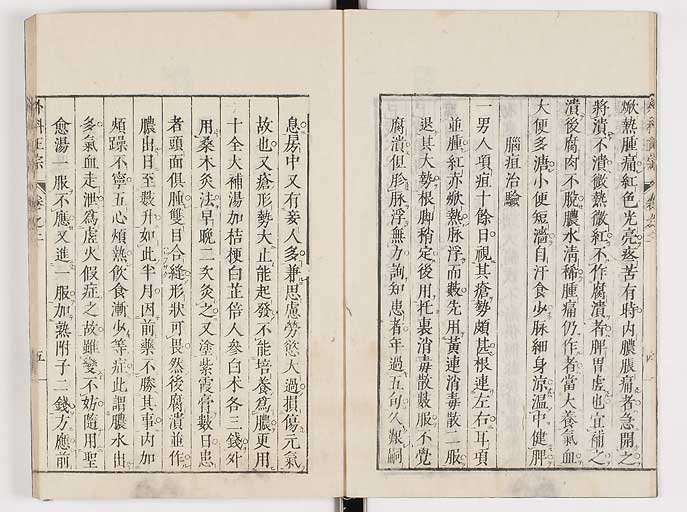 焮熱腫痛紅色光亮疼苦有時內膿脹痛者急開之
將潰不潰微熱微紅不作腐潰者脾胃虛也宜補之
潰後腐肉不脫膿水清稀腫痛仍作者當大養氣血
大便多溏小便短澁自汗食少脉細身涼溫中健脾
腦疽治驗
一男人項疽十餘日視其瘡勢頗甚根連左右耳項
並腫紅赤焮熱脉浮而數先用黃連消毒散二服
退其大勢根脚稍定後用托裏消毒散數服不覺
腐潰但𦙶脉浮無力詢知患者年過五旬久艱嗣
息房中又有妾人多兼思慮勞慾大過損傷元氣
故也又瘡形勢大止能起發不能培養爲膿更用
十全大補湯加桔梗白芷倍人參白朮各三錢外
用桑木灸法早晩二次灸之又塗紫霞膏數日患
者頭面俱腫雙目合縫形狀可畏然後腐潰並作
膿出日至數升如此半月因前藥不勝其事內加
煩躁不寧五心煩熱飲食漸少等症此謂膿水出
多氣血走泄爲虛火假症之故雖變不妨隨用聖
愈湯一服不應又進一服加熟附子二錢方應前
外科正宗
卷之二
五